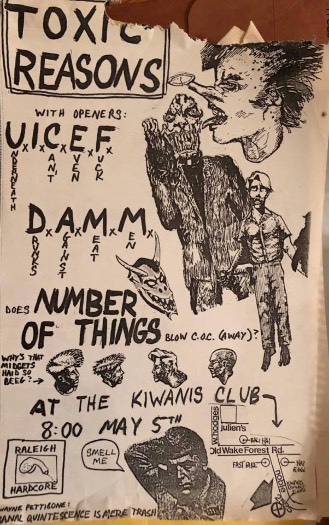 TOXIC
REASONS
WITH OPENERS:
U.X.I.X.C.X.E.X.F.
UNDERNEATH
I
CAN'T
EVEN
FUCK
D.X.A.X.M.X.M.X
DRUNKS
AGAINST
MEAT
MEN
DOES NUMBER
OF THINGS BLOW C.O.C. (AWAY)?
WHY'S THAT
MIDGETS
HAID SO
BEEG?
AT THE KIWANIS CLUB
8:00 MAY 5TH
RALEIGH
HARDCORE
SMELL
ME
Julien's
Old Wake Forest Rd.
WAYNE PETTIGONE:
ANAL QUINTESCENCE IS MERE TRASH